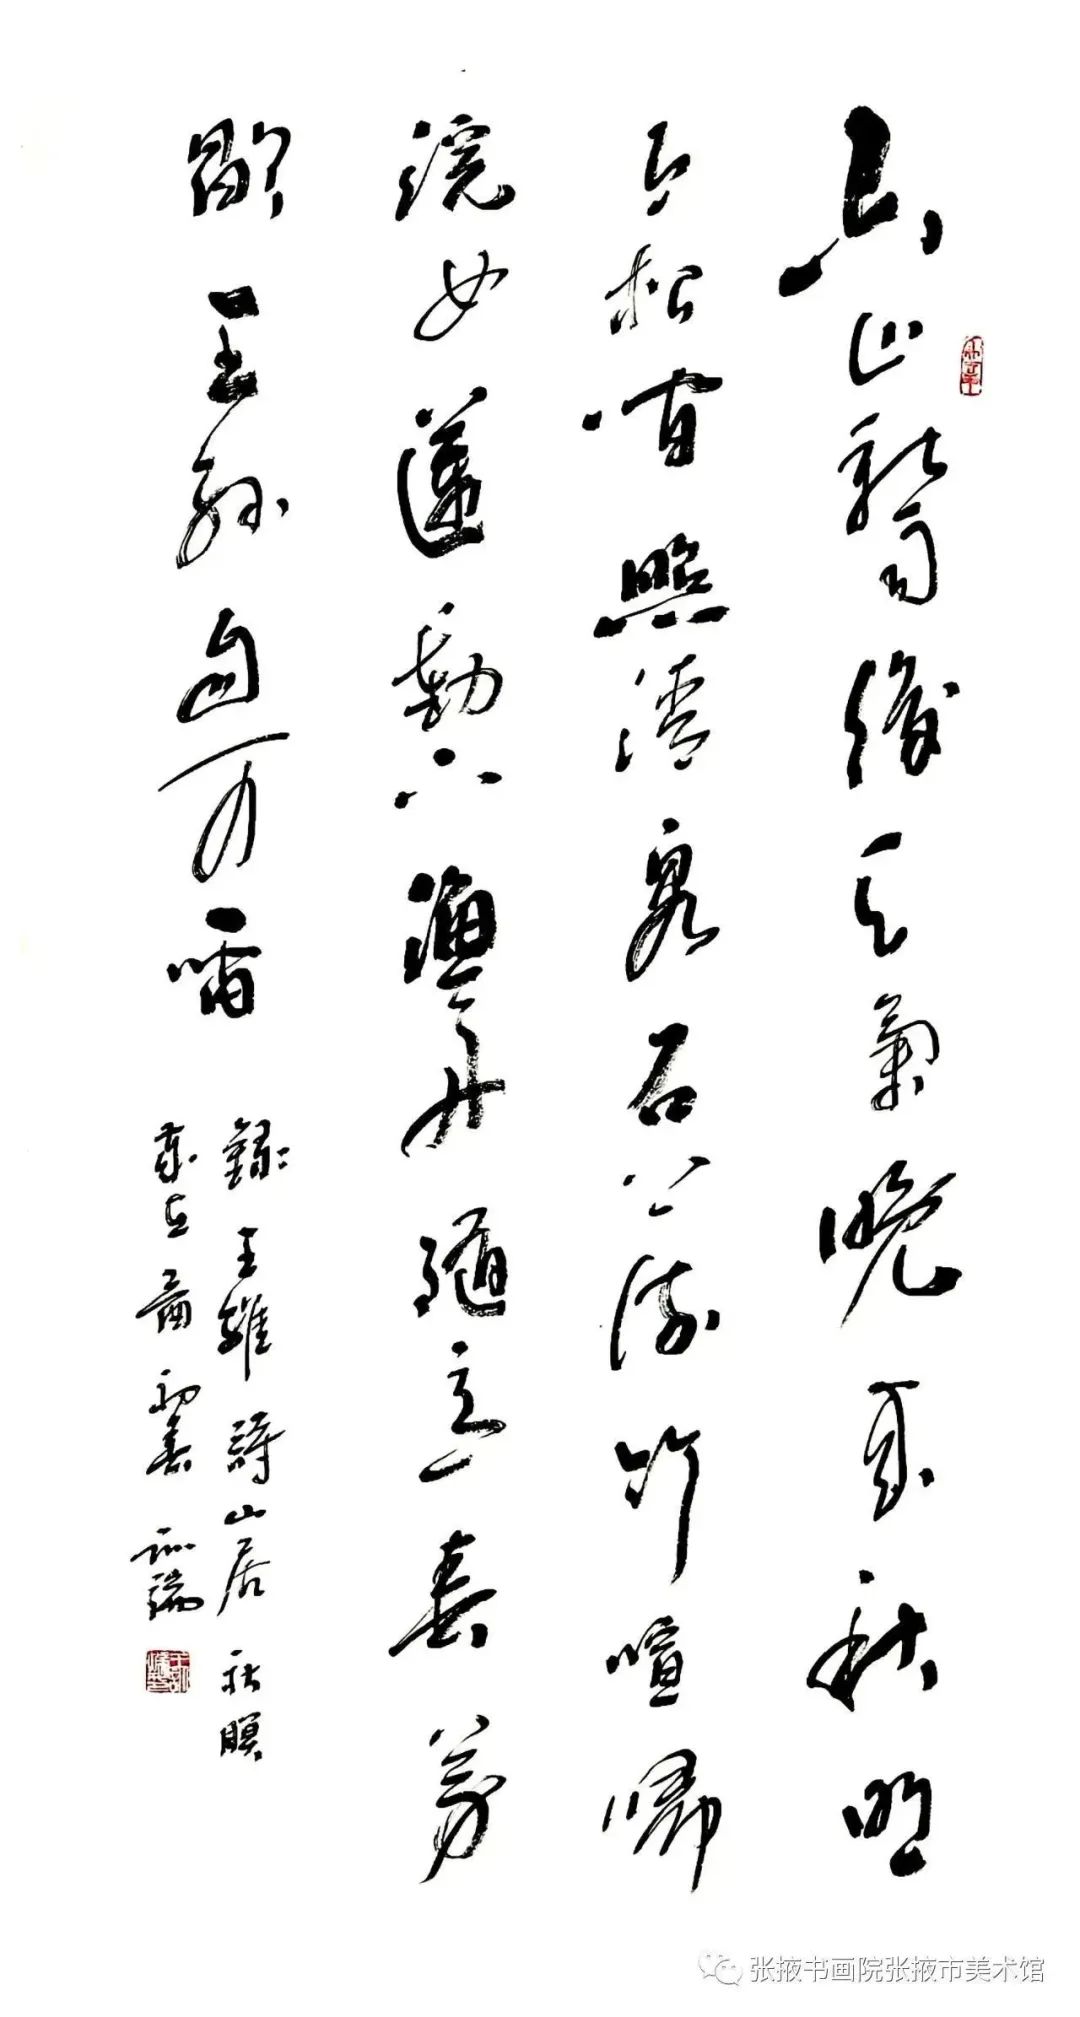 空山新雨後天氣晚來秋明
月松間照清泉石上流竹喧歸
浣女蓮動下漁舟隨意春芳
歇王孫自可留
錄王維詩山居秋暝
歲在初春
张掖书画院张掖市美术馆